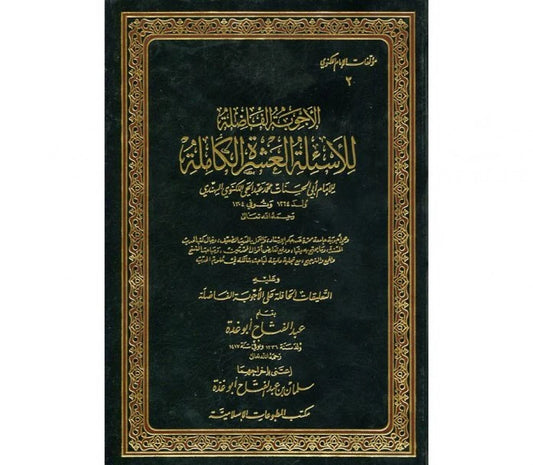 مؤلفات الإمام اللكنوي
٢
الأجوبة الفاضلة
للأسئلة العشرة الكاملة
للإمام أبي الحسنات محمد عبد الحي اللكنوي الهندي
ولد ١٢٦٤ وتوفي ١٣٠٤
رحمه الله تعالى
وعليه
التعليقات الحافلة على الأجوبة الفاضلة
بقلم
عبد الفتاح أبو غدة
ولد سنة ١٣٣٦ وتوفي سنة ١٤١٧
رحمه الله تعالى
اعتنى بإخراجها
سلمان بن عبد الفتاح أبو غدة
مكتب المطبوعات الإسلامية